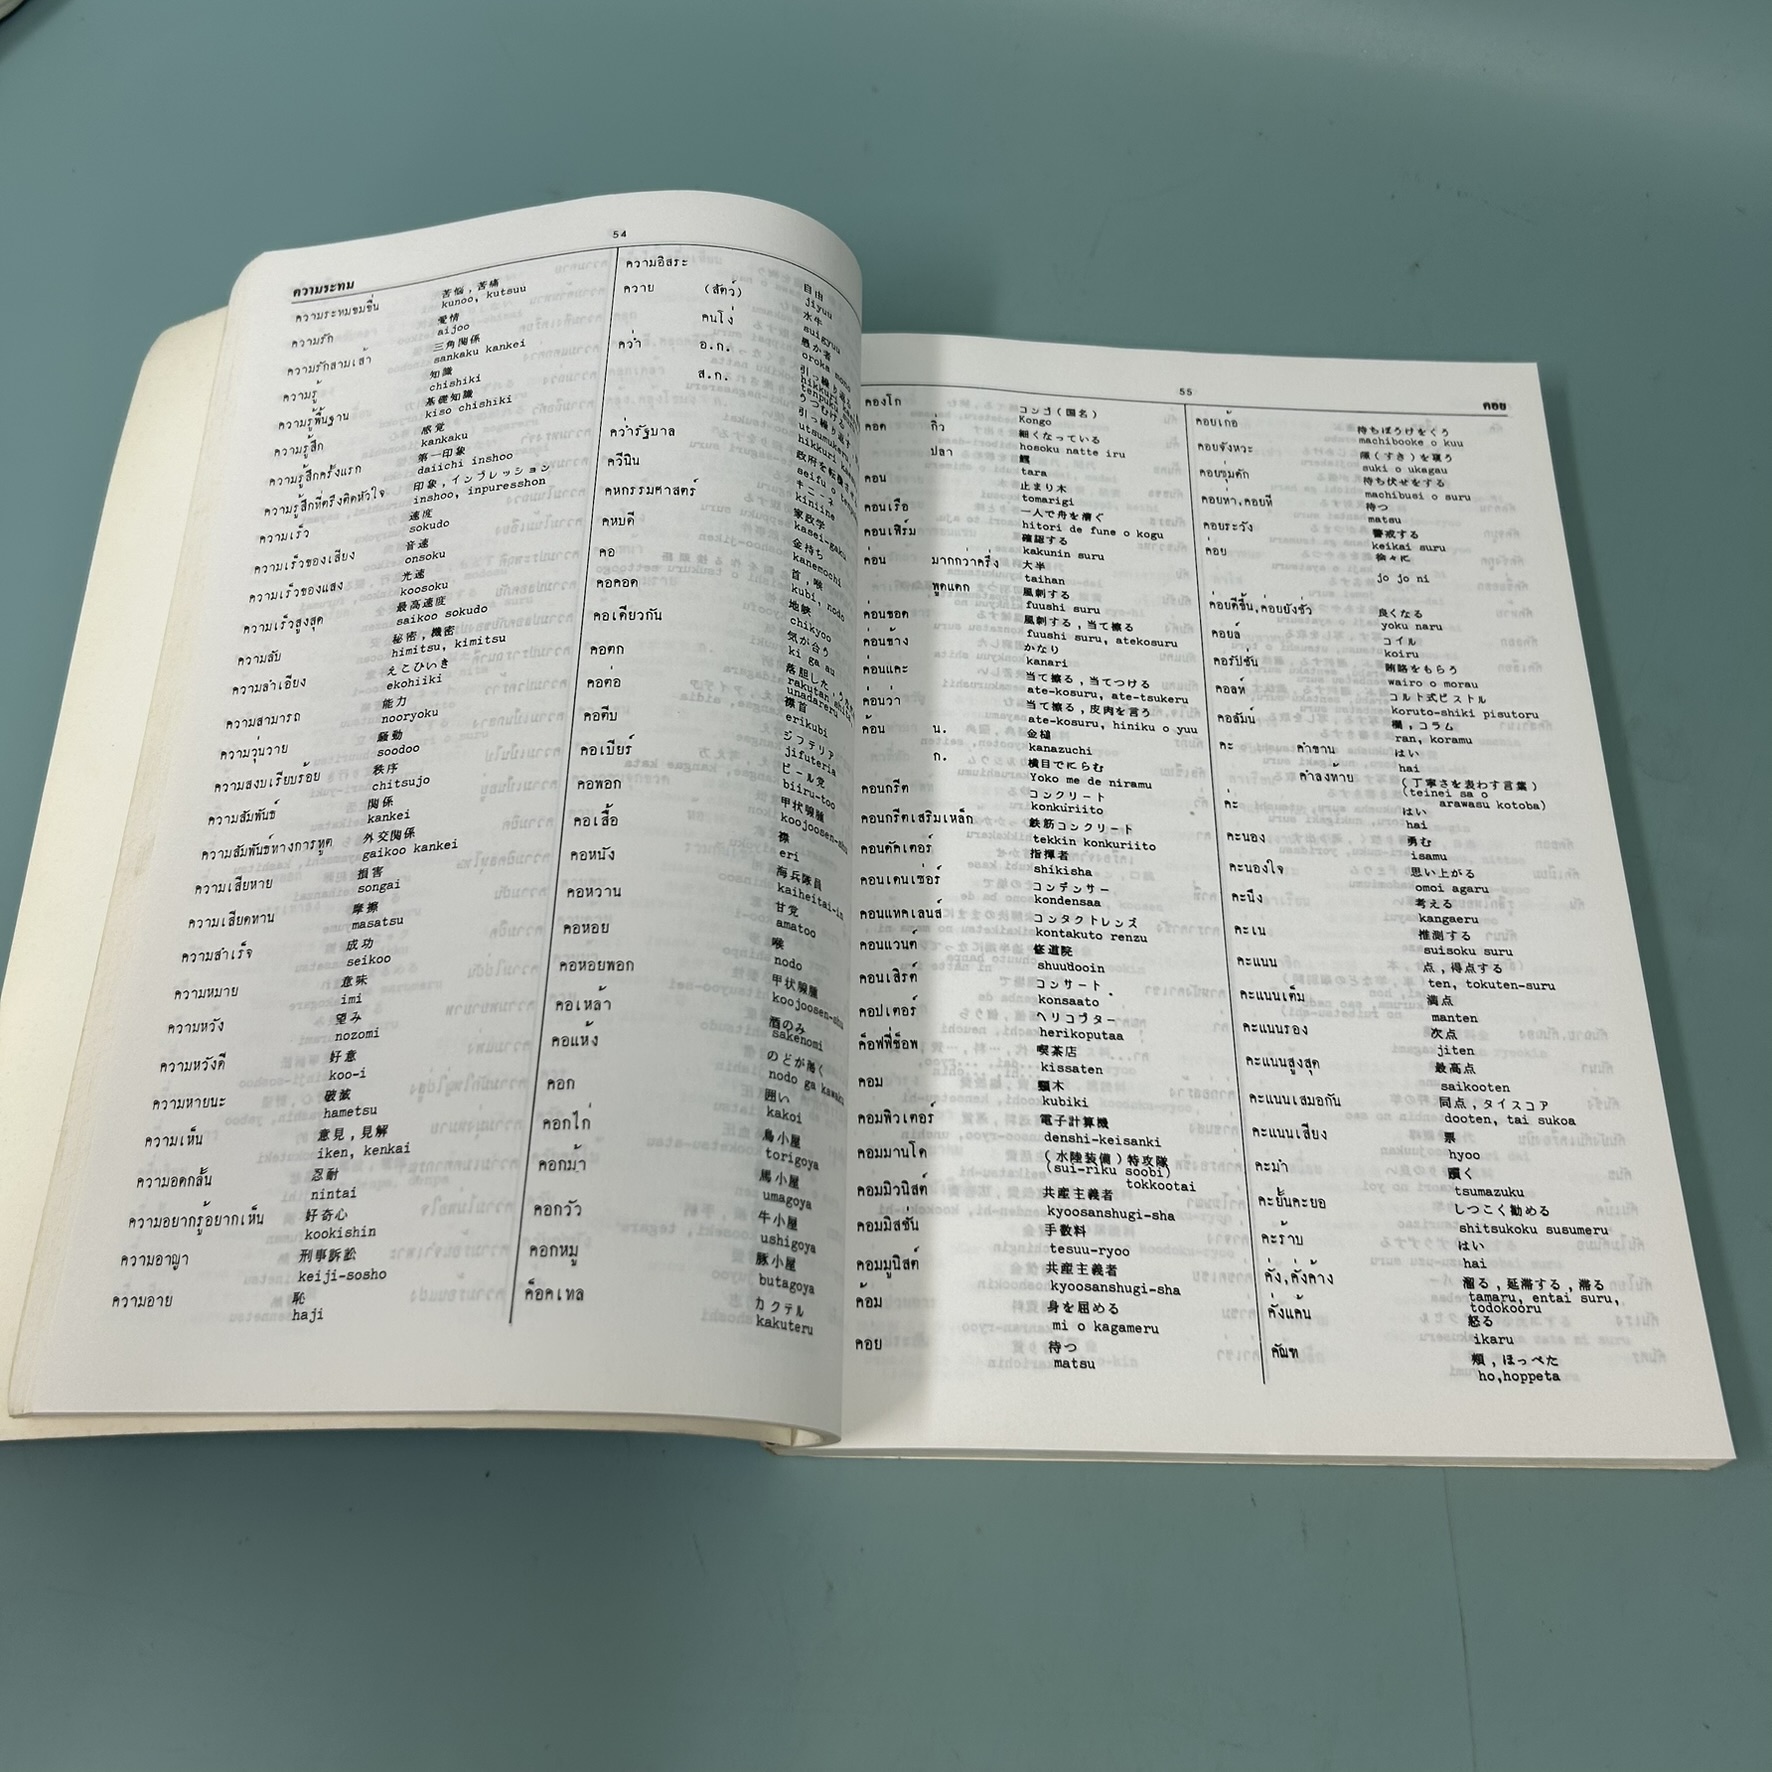 54
ความระทม
ความระทมขมขื่น 苦悩,苦痛
kunoo, kutsuu
ความรัก 愛情
aijoo
ความรักสามเส้า 三角関係
sankaku kankei
ความรู้ 知識
chishiki
ความรู้พื้นฐาน 基礎知識
kiso chishiki
ความรู้สึก 感覚
kankaku
ความรู้สึกครั้งแรก 第一印象
daiichi inshoo
ความรู้สึกที่ตรึงติดหัวใจ 印象,インプレッション
inshoo, inpuresshon
ความเร็ว 速度
sokudo
ความเร็วของเสียง 音速
onsoku
ความเร็วของแสง 光速
koosoku
ความเร็วสูงสุด 最高速度
saikoo sokudo
ความลับ 秘密,機密
himitsu, kimitsu
ความลำเอียง えこひいき
ekohiiki
ความสามารถ 能力
nooryoku
ความวุ่นวาย 騒動
soodoo
ความสงบเรียบร้อย 秩序
chitsujo
ความสัมพันธ์ 関係
kankei
ความสัมพันธ์ทางการทูต 外交関係
gaikoo kankei
ความเสียหาย 損害
songai
ความเสียดทาน 摩擦
masatsu
ความสำเร็จ 成功
seikoo
ความหมาย 意味
imi
ความหวัง 望み
nozomi
ความหวังดี 好意
koo-i
ความหายนะ 破滅
hametsu
ความเห็น 意見,見解
iken, kenkai
ความอดกลั้น 忍耐
nintai
ความอยากรู้อยากเห็น 好奇心
kookishin
ความอาญา 刑事訴訟
keiji-sosho
ความอาย 恥
haji
ความอิสระ 自由
jiyuu
ควาย (สัตว์) 水牛
suigyuu
คนโง่ 愚か者
oroka mono
คว่ำ อ.ก. 引っ繰り返る
hikkuri
tenpuku
ส.ก. うつむける
引っ繰り返す
utsumukeru
hikkuri
คว่ำรัฐบาล 政府を転覆
seifu o
ควีนิน キニーネ
kiniine
คหกรรมศาสตร์ 家政学
kasei-gaku
คหบดี 金持ち
kanemochi
คอ 首,喉
kubi, nodo
คอคอด 地峡
chikyoo
คอเดียวกัน 気が合う
ki ga au
คอตก 落胆した,
rakutan shita
unadareru
คอต่อ 襟首
erikubi
คอตีบ ジフテリア
jifuteria
คอเบียร์ ビール党
biiru-too
คอพอก 甲状腺腫
koojoosen-shu
คอเสื้อ 襟
eri
คอหนัง 海兵隊員
kaiheitai-in
คอหวาน 甘党
amatoo
คอหอย 喉
nodo
คอหอยพอก 甲状腺腫
koojoosen-shu
คอเหล้า 酒のみ
sakenomi
คอแห้ง のどが渇く
nodo ga kawaku
คอก 囲い
kakoi
คอกไก่ 鳥小屋
torigoya
คอกม้า 馬小屋
umagoya
คอกวัว 牛小屋
ushigoya
คอกหมู 豚小屋
butagoya
ค็อคเทล カクテル
kakuteru
55
คอย
คองโก コンゴ(国名)
Kongo
คอด กิ่ว 細くなっている
hosoku natte iru
ปลา 鱈
tara
คอน 止まり木
tomarigi
คอนเรือ 一人で舟を漕ぐ
hitori de fune o kogu
คอนเฟิร์ม 確認する
kakunin suru
ค่อน มากกว่าครึ่ง 大半
taihan
พูดแดก 風刺する
fuushi suru
ค่อนขอด 風刺する,当て擦る
fuushi suru, atekosuru
ค่อนข้าง かなり
kanari
ค่อนแคะ 当て擦る,当てつける
ate-kosuru, ate-tsukeru
ค่อนว่า 当て擦る,皮肉を言う
ate-kosuru, hiniku o yuu
ค้อน น. 金槌
kanazuchi
ก. 横目でにらむ
Yoko me de niramu
คอนกรีต コンクリート
konkuriito
คอนกรีตเสริมเหล็ก 鉄筋コンクリート
tekkin konkuriito
คอนดัคเตอร์ 指揮者
shikisha
คอนเดนเซ่อร์ コンデンサー
kondensaa
คอนแทคเลนส์ コンタクトレンズ
kontakuto renzu
คอนแวนต์ 修道院
shuudooin
คอนเสิร์ต コンサート
konsaato
คอปเตอร์ ヘリコプター
herikoputaa
ค็อฟฟี่ช็อพ 喫茶店
kissaten
คอม 頸木
kubiki
คอมพิวเตอร์ 電子計算機
denshi-keisanki
คอมมานโด (水陸装備)特攻隊
(sui-riku soobi)
tokkootai
คอมมิวนิสต์ 共産主義者
kyoosanshugi-sha
คอมมิสชั่น 手数料
tesuu-ryoo
คอมมูนิสต์ 共産主義者
kyoosanshugi-sha
ค้อม 身を屈める
mi o kagameru
คอย 待つ
matsu
คอยเก้อ 待ちぼうけをくう
machibooke o kuu
คอยจังหวะ 隙(すき)を窺う
suki o ukagau
คอยซุ่มดัก 待ち伏せをする
machibusi o suru
คอยท่า,คอยที 待つ
matsu
คอยระวัง 警戒する
keikai suru
ค่อย 徐々に
jo jo ni
ค่อยดีขึ้น,ค่อยยังชั่ว 良くなる
yoku naru
คอยล์ コイル
koiru
คอรัปชั่น 賄賂をもらう
wairo o morau
คอลท์ コルト式ピストル
koruto-shiki pisutoru
คอลัมน์ 欄,コラム
ran, koramu
คะ คำขาน はい
hai
คำลงท้าย (丁寧さを表わす言葉)
(teinei sa o
arawasu kotoba)
ค่ะ はい
hai
คะนอง 勇む
isamu
คะนองใจ 思い上がる
omoi agaru
คะนึง 考える
kangaeru
คะเน 推測する
suisoku suru
คะแนน 点,得点する
ten, tokuten-suru
คะแนนเต็ม 満点
manten
คะแนนรอง 次点
jiten
คะแนนสูงสุด 最高点
saikooten
คะแนนเสมอกัน 同点,タイスコア
dooten, tai sukoa
คะแนนเสียง 票
hyoo
คะมำ 躓く
tsumazuku
คะยั้นคะยอ しつこく勧める
shitsukoku susumeru
คะร้าบ はい
hai
คั่ง,คั่งค้าง 溜る,延滞する,滞る
tamaru, entai suru,
todokooru
คั่งแค้น 怒る
ikaru
คัณฑ 頬,ほっぺた
ho,hoppeta